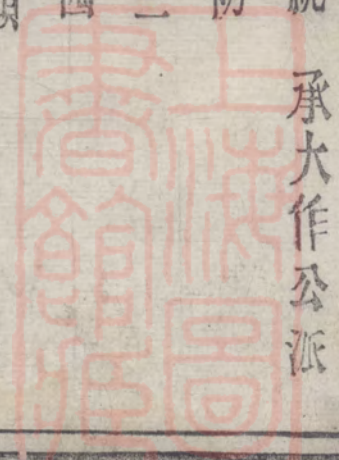 承大作公派
上海圖
書館藏